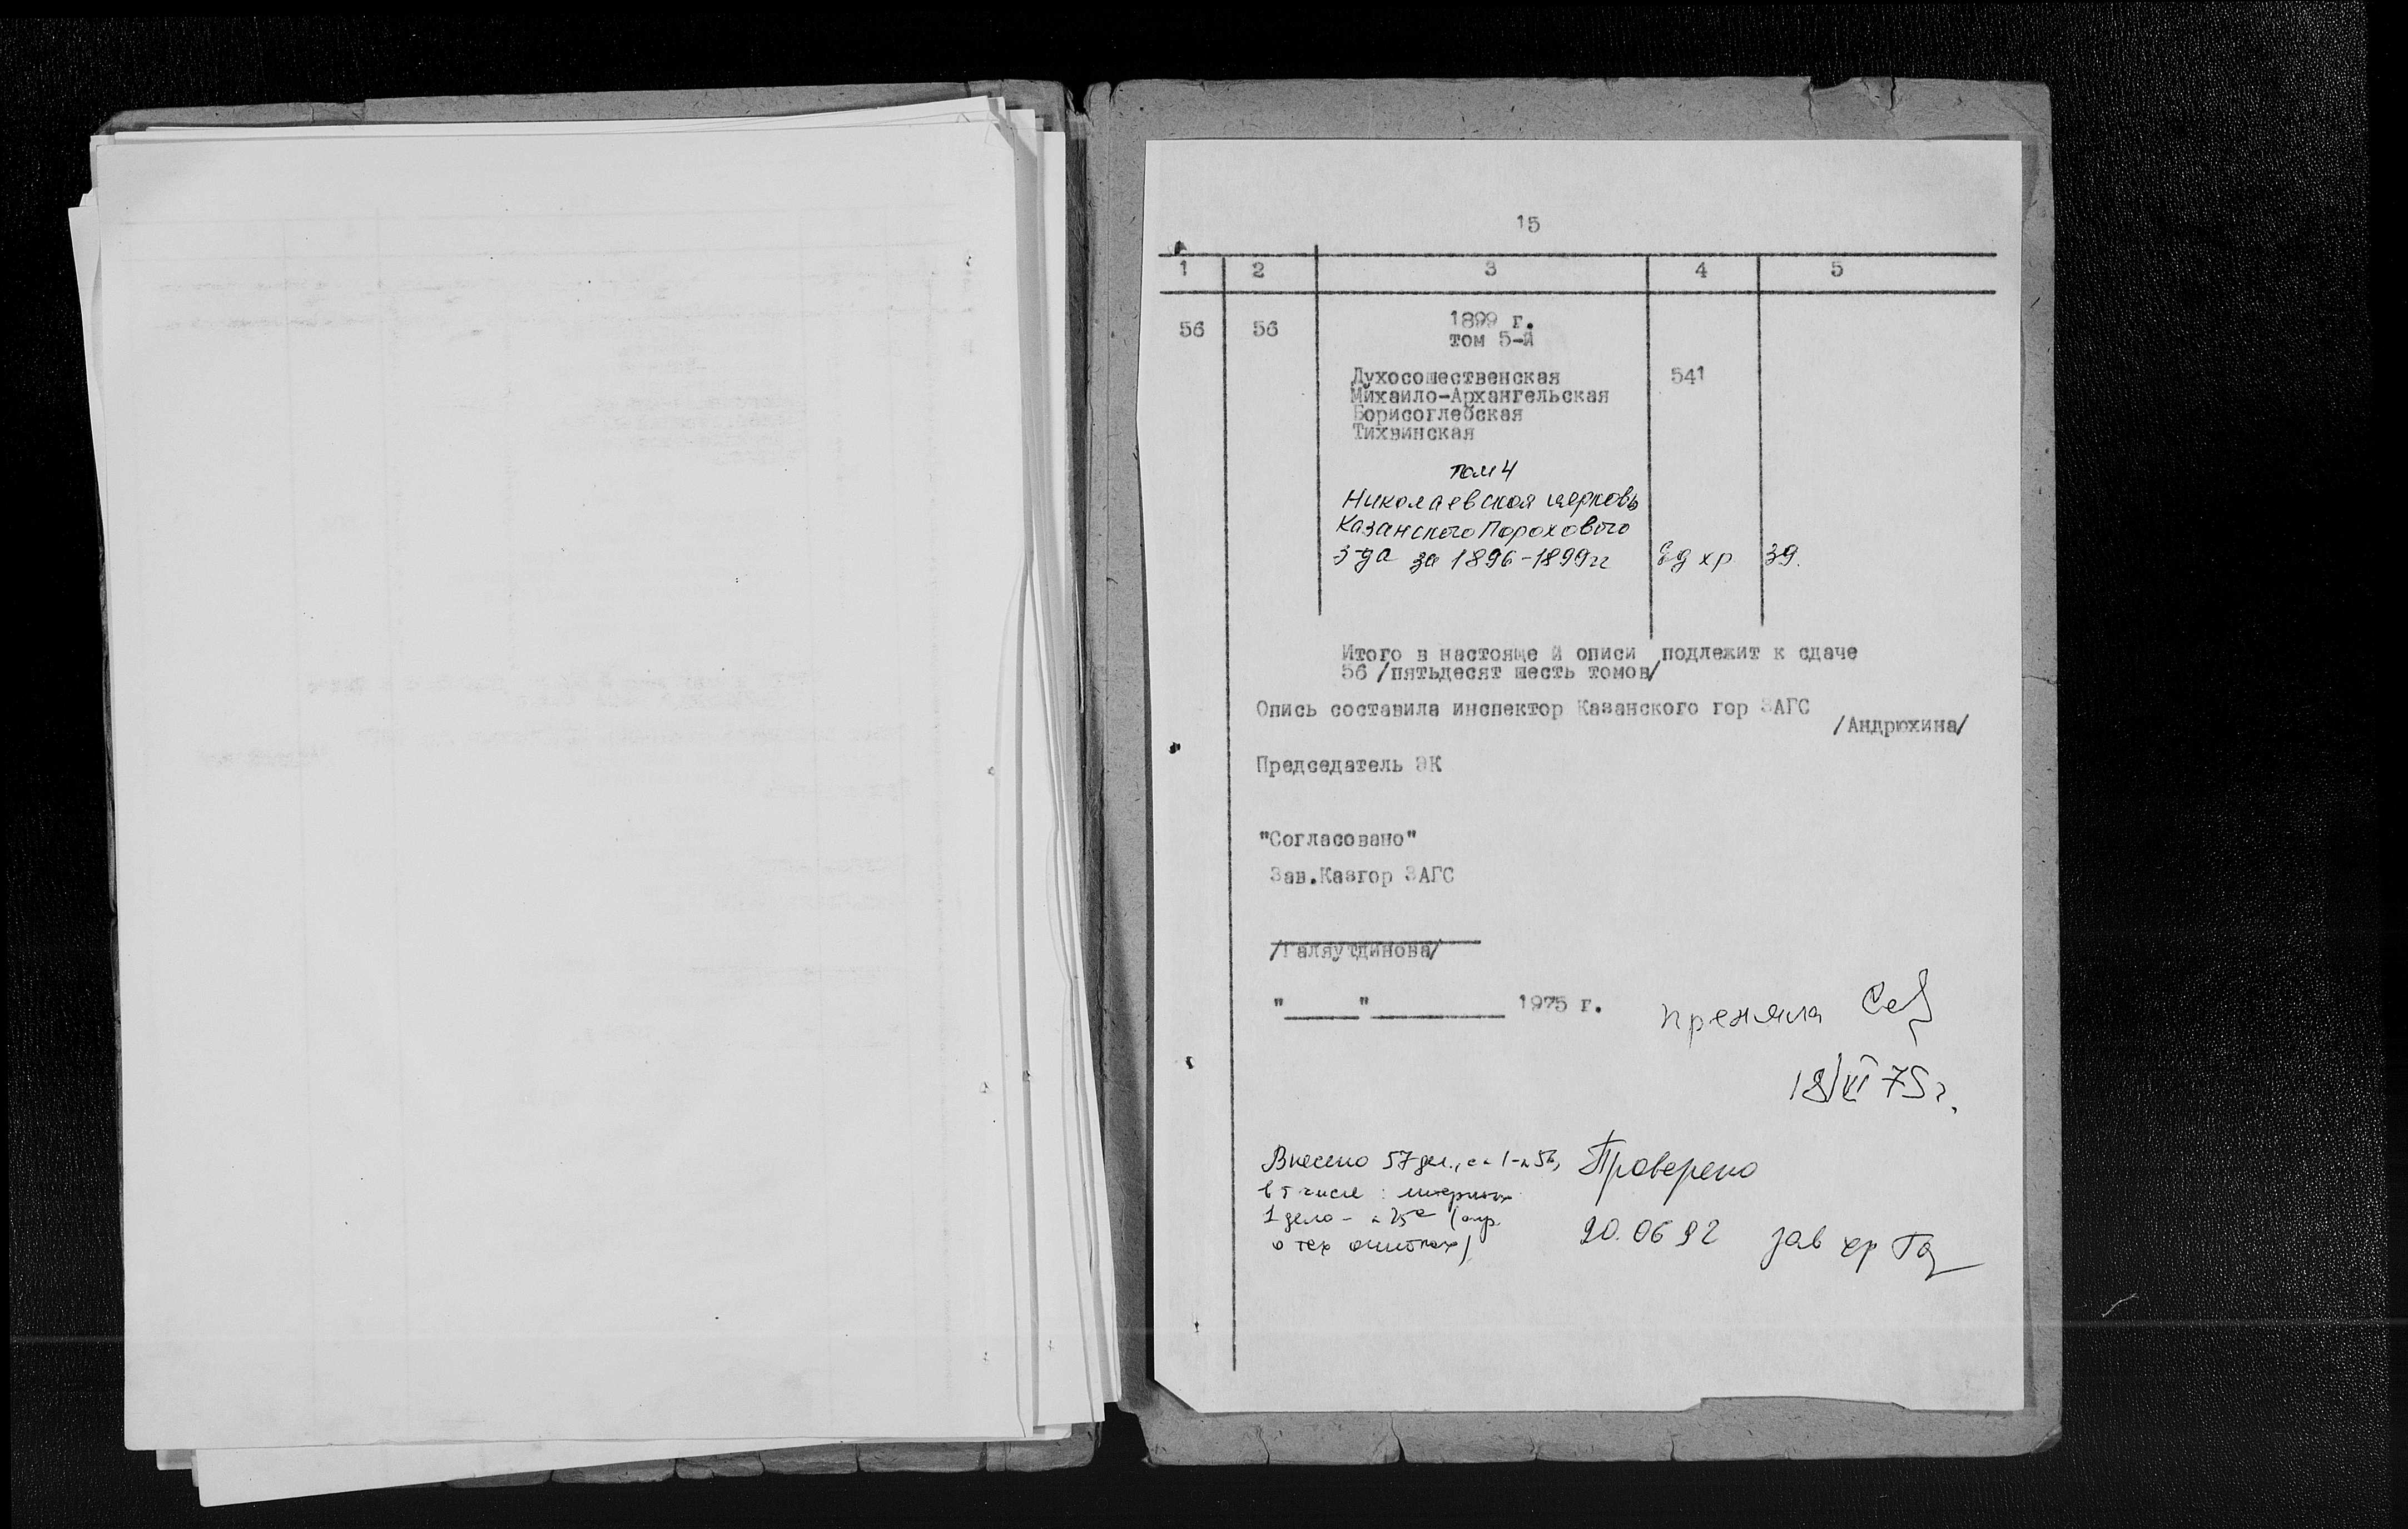 15
1 2 3 4 5
56 56 1899 г.
том 5-й
Духосошественская 541
Михаило-Архангельская
Борисоглебская
Тихвинская
том 4
Николаевская церковь
Казанского Порохового
з-да за 1896-1899гг Ед хр 39.
Итого в настояще й описи подлежит к сдаче
56 /пятьдесят шесть томов/
Опись составила инспектор Казанского гор ЗАГС
/Андрюхина/
Председатель ЭК
"Согласовано"
Зав.Казгор ЗАГС
/Галяутдинова/
"____"________ 1975 г.
приняла
18/VI 75 г.
Внесено 57 дел., с 1- 56,
в т числе : литерных
1 дело -
о тех ошибках/
Проверено
20.06 92 зав хр